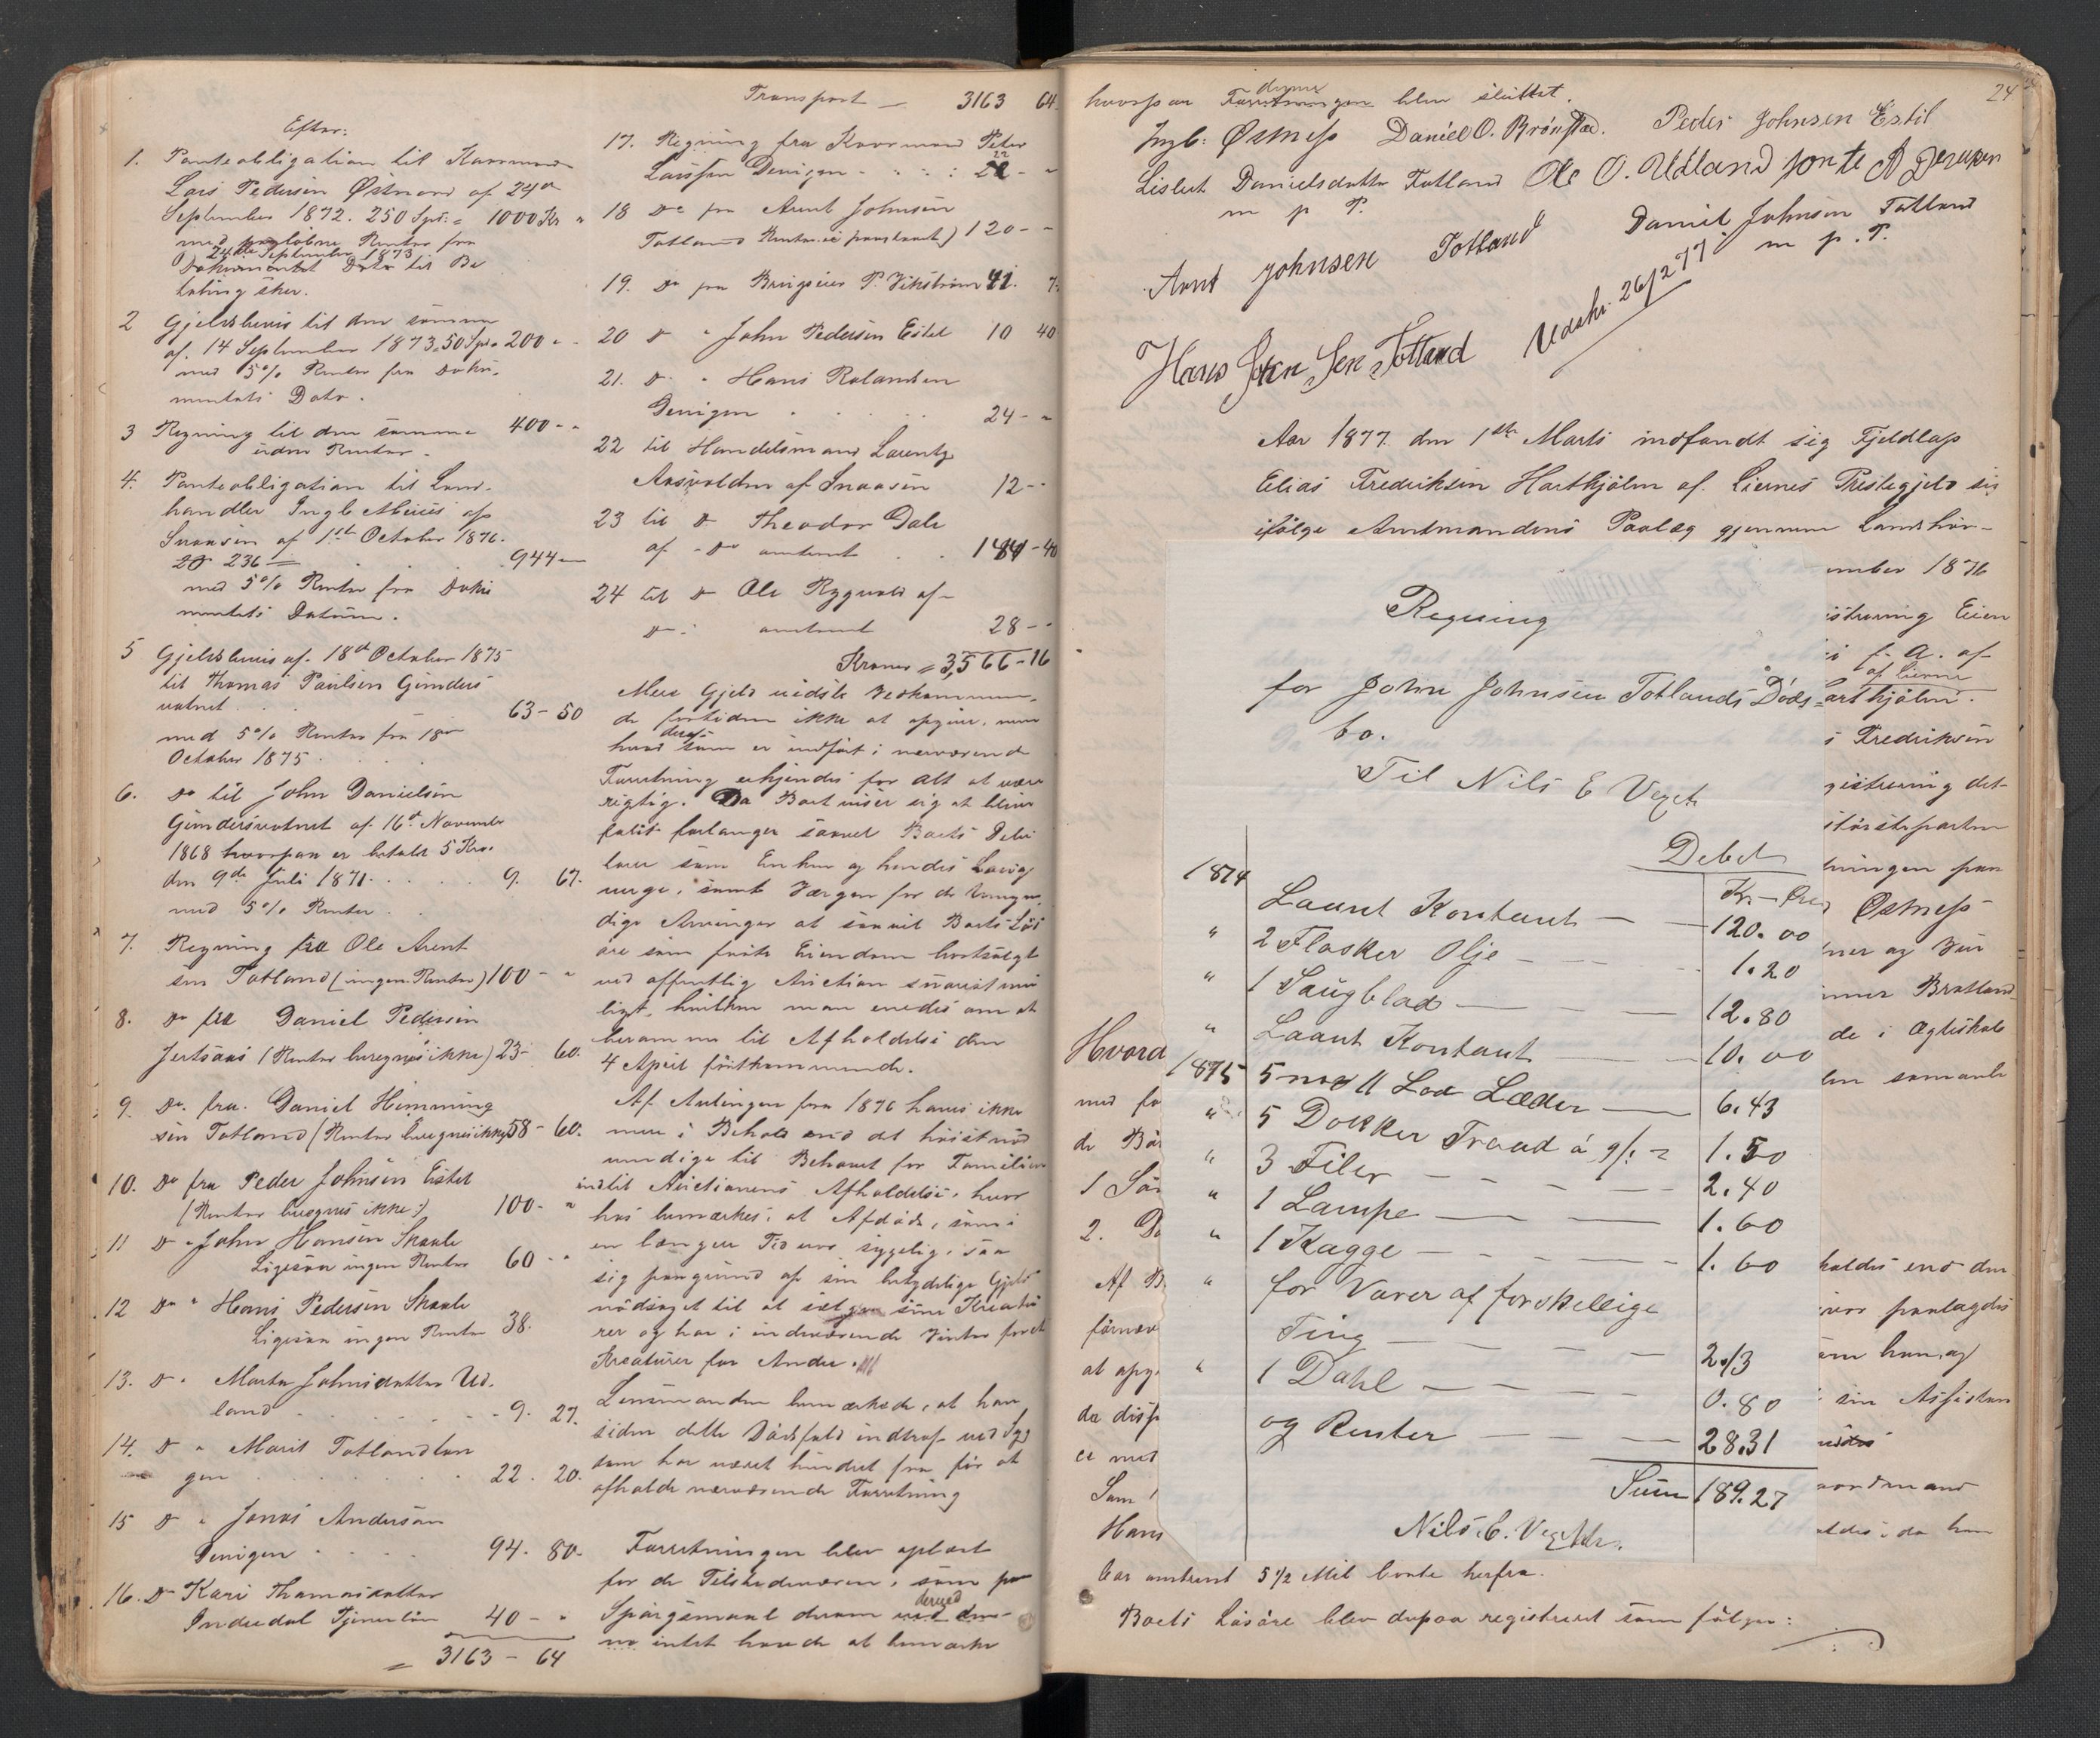 Efter:
1. Panteobligation til Kaarmand
Lars Pedersen Østnes af 24de
September 1872. 250 Spd. = 1000 Kr "
med paaløbne Renter fra
24de September 1873
Dokumentet Dato til Be
taling sker.
2 Gjeldsbevis til den samme
af 14 September 1873. 50 Spd = 200 "
med 5% Renter fra Doku-
mentets Dato.
3 Regning til den samme 400 - "
uden Renter.
4. Panteobligation til Land-
handler Ingb
Snaasen af 1ste October 1876.
236 944 -
med 5% Renter fra Doku
mentets Datum.
5 Gjeldsbevis af 18de October 1875
til Thomas Paulsen Gjinders
vatnet 63 - 50
med 5% Renter fra 18de
October 1875.
6. Do til John Danielsen
Gjindersvatnet af 16de November
1868 hvorpaa er betalt 5 Kro.
den 9de Juli 1871. 9. 67.
med 5% Renter
7. Regning fra Ole Arent
sen Totland (ingen Renter) 100 - "
8. Do fra Daniel Pedersen
(Renter beregnes ikke) 23 - 60.
9. Do. fra. Daniel Hemming
sen Totland (Renter beregnes ikke) 58 - 60.
10. Do fra Peder Johnsen Estil
(Renter beregnes ikke) 100 - "
11 Do " John Hansen Skaale
Ligesaa ingen Renter 60 - "
12 Do " Hans Pedersen Skaale
Ligesaa ingen Renter 38.
13. Do. Marta Johnsdatter Ud-
land 9. 27.
14. Do " Marit Totland
22. 20.
15 Do " Jonas Andersen
Devigen 94. 80.
16. Do Kari Thomasdatter
Inderdal Tjenerløn 40 - "
= 3163 - 64
Transport — 3163 64.
17. Regning fra Kaarmand Peter
Larssen Devigen 22 - "
18 Do fra Arent Johnsen
Totland 120 - -
19. Do fra P. Vikstrøm 41. 7.
20 Do " John Pedersen Estil 10 40
21. Do " Hans Rolandsen
Devigen 24 - "
22 til Handelsmand Lorentz
Aasvolden af Snaasen 12 - -
23 til Do Theodor Dahl
af Do omtrent 184 - 40
24 til Do Ole Rygvold af
Do omtrent 28 - -
Kroner = 3,566 - 16
Mere Gjeld vidste Vedkommen-
de fortiden ikke at opgive, men
hvad deraf som er indført i nærværende
Forretning erkjendes for alt at være
rigtig. Da Boet viser sig at blive
fallit forlanger saavel Boets
som Enken og hendes Laug
værge, samt Værgen for de Umyn-
dige Arvinger at saavel Boets Løs
øre som faste Eiendom bortsælges
ved offentlig Auction snarest mu
ligt, hvilken man enedes om at
beramme til Afholdelse den
4 April førstkommende.
Af Avlingen fra 1876 haves ikke
mere i Behold end det høist nød
vendige til Behovet for Familien
indtil Auctionens Afholdelse, hvor
hos bemærkes, at Afdøde, som i
en længere Tid var sygelig, saa
sig paagrund af sin betydelige Gjeld
nødsaget til at sælge sine Kreatu
rer og har i indeværende Vinter foret
Kreaturer for Andre.
Lensmanden bemærkede, at han
siden dette Dødsfald indtraf ved Syg
dom har været hindret fra før at
afholde nærværende Forretning
Forretningen blev oplæst
for de Tilstedeværende, som paa
Spørgsmaal derom derved
intet havde at bemærke
24
hvorpaa denne Forretningen blev sluttet.
Ingb: Østness Daniel O. Brønstad. Peder Johnsen Estil
Lisbet Danielsdatter Totland Ole O. Udland
m p P.
Arnt Johnsen Totland Daniel Johnsen Totland
m. p. P.
Hans John Sen Totland Udskr. 26/2 77
Aar 1877. den 1ste Marts indfandt sig Fjeldlap
Elias Fredriksen Hartkjølen af Liernes Prestegjeld sig
ifølge Amtmandens Paalæg gjennem
ember 1876
istrering Eien
i f. A. af
af Lierne
artkjølen.
s Fredriksen
gistrering det-
ningen paa
Østness
ner og Vur
inner Bratland
de i Ægteskab
len samarb
holdes end den
hvor paalagdes
om han og
sin
nordmand
oldes, da han
Hvord
med fo
de Bø
1 Søn
2. Da
Af B
førnæv
at opg
da disp
er med
Sam
Hans
Regning
for John Johnsen Totlands Døds-
bo.
Til Nils E Vegset
Debet
Kr — Øre
1874 Laant Kontant — 120. 00
" 2 Flasker Olje — 1. 20
" 1 Saugblad — 12. 80
" Laant Kontant — 10. 00
1875 5 mrk 11 Lod Læder — 6. 43
" 5 Dokker Traad á 9/s = 1. 50
" 3 Filer — 2. 40
" 1 Lampe — 1. 60
" 1 Kagge — 1. 60
" for Varer af forskellige
Ting — 2. 13
" 1 Dahl — 0. 80
og Renter — 28. 31
Sum 189. 27
Nils. E. Vegset.
bor omtrent 5 1/2 Mil borte herfra.
Boets Løsøre blev derpaa registreret som følger: